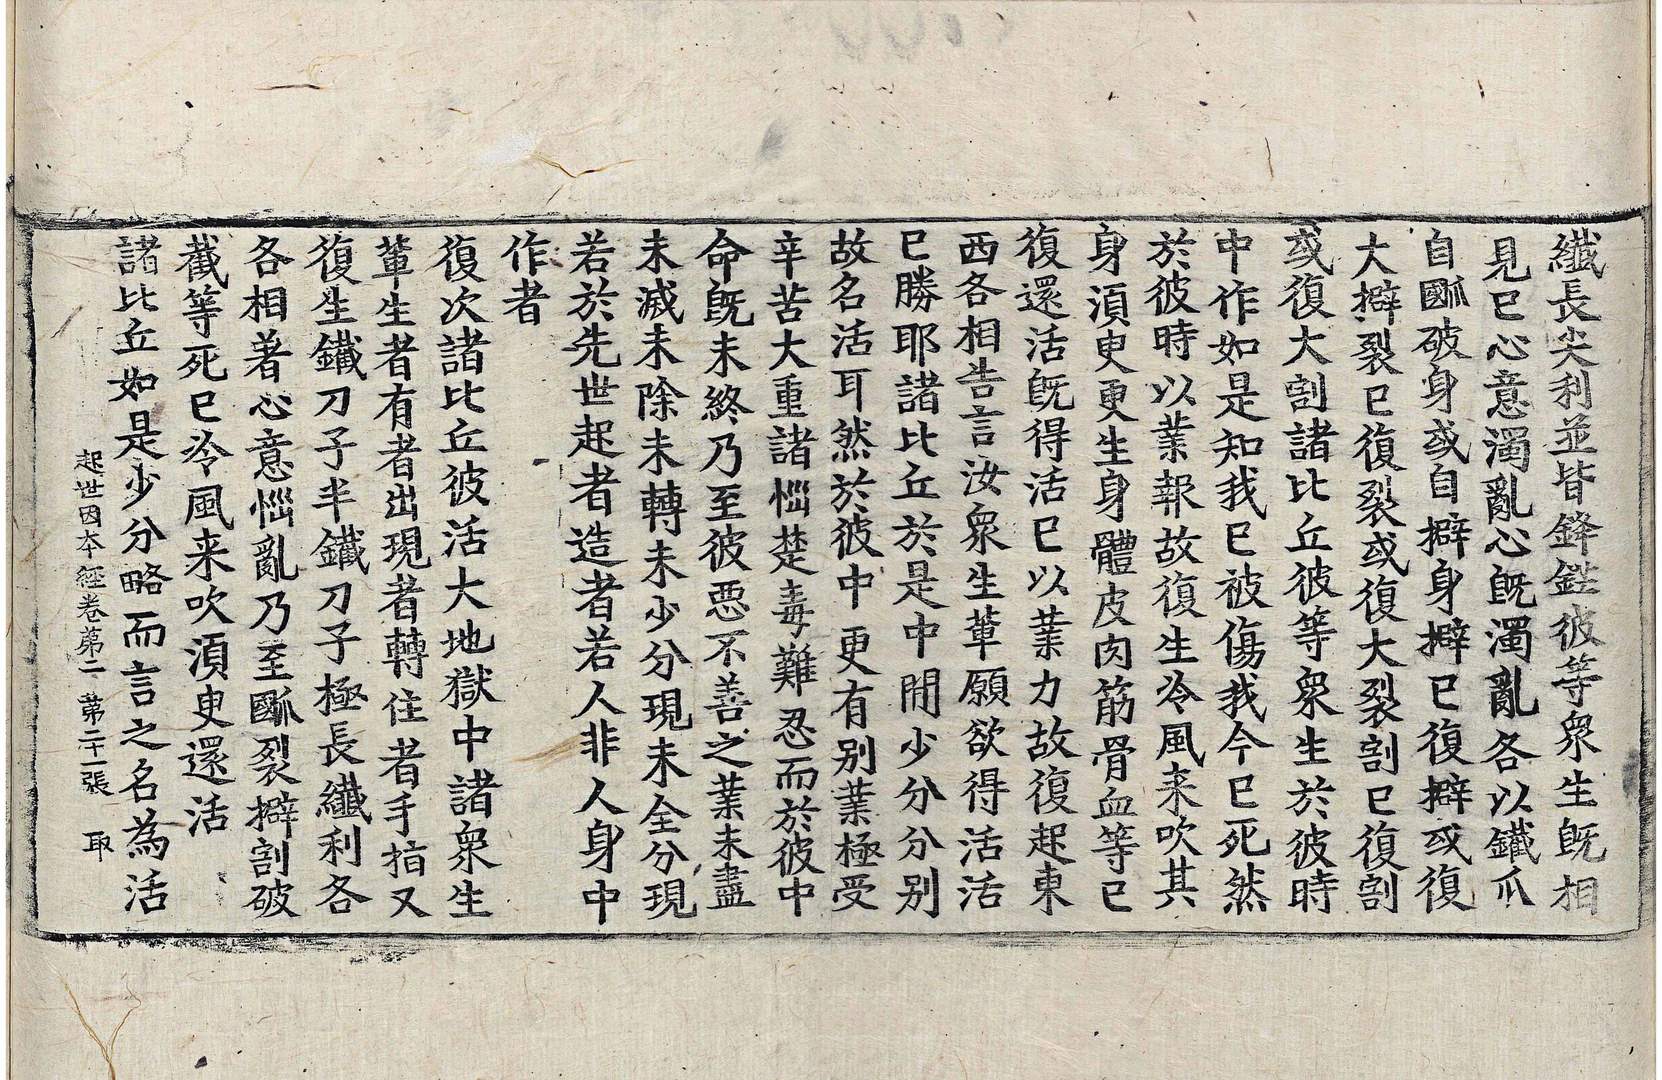 纖長尖利並皆鋒鋩彼等衆生旣相
見已心意濁亂心旣濁亂各以鐵爪
自𤔩破身或自擗身擗已復擗或復
大擗裂已復裂或復大裂割已復割
或復大割諸比丘彼等衆生於彼時
中作如是知我已被傷我今已死然
於彼時以業報故復生冷風来吹其
身湏臾更生身體皮肉筋骨血等已
復還活旣得活已以業力故復起東
西各相告言汝衆生軰願欲得活活
已勝耶諸比丘於是中閒少分分别
故名活耳然於彼中更有别業極受
辛苦大重諸惱楚毒難忍而於彼中
命旣未終乃至彼惡不善之業未盡
未滅未除未轉未少分現未全分現
若於先世起者造者若人非人身中
作者
復次諸比丘彼活大地獄中諸衆生
軰生者有者出現者轉住者手指又
復生鐵刀子半鐵刀子極長纖利各
各相著心意惱亂乃至𤔩裂擗割破
截等死已冷風来吹湏臾還活
諸比丘如是少分略而言之名為活
起世因夲經卷苐二 苐二十一張 取